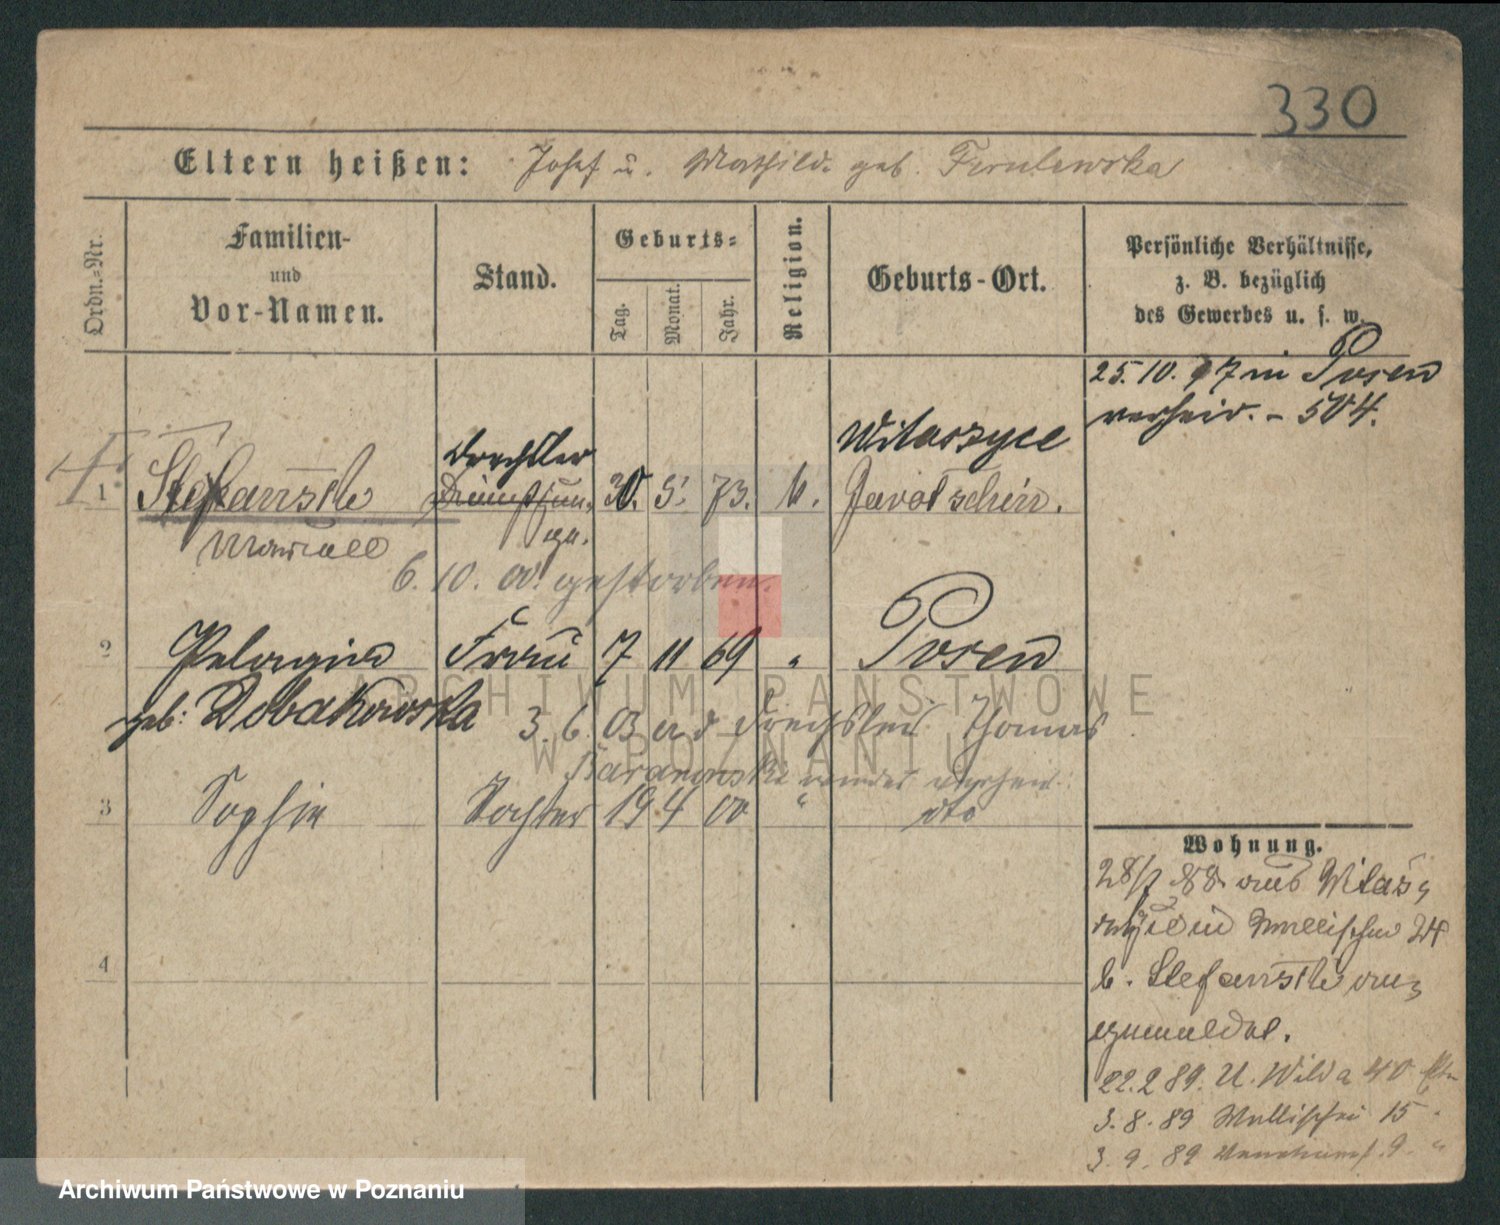 330
Eltern heißen: Josef u. Mathilde geb.
Ordn.-Nr.
Familien- und Vor-Namen.
Stand.
Geburts-
Tag.
Monat.
Jahr.
Religion.
Geburts-Ort.
Persönliche Verhältnisse,
z. B. bezüglich
des Gewerbes u. s. w.
25.10.97 in Posen
verheir. - 504.
Witaszyce
Drechsler
1 Stefanski 30. 5. 73. k. Jarotschin.
Marcell
6. 10. 00. gestorben.
2 Pelagia Frau 7 11 69 " Posen
geb. Dobakowska
3. 6. 03 a. d. Drechsler Thomas
wieder verheir.
3 Sophie Tochter 19 4 00 " dto
4
Wohnung.
28/7 88. aus
Wallischei 24
b. Stefanski
22.2.89. U. Wilda 40
3. 8. 89 Wallischei 15 "
3. 9. 89 9. "
ARCHIWUM PAŃSTWOWE
W POZNANIU
Archiwum Państwowe w Poznaniu